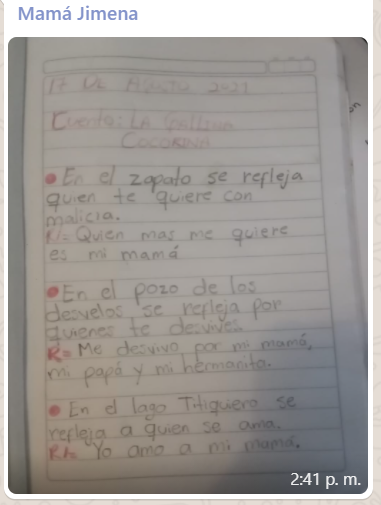 Mamá Jimena
17 DE AGOSTO 2021
Cuento: LA Gallina
COCORINA
En el zapato se refleja
quien te quiere con
malicia.
R/= Quien mas me quiere
es mi mamá
En el pozo de los
desvelos se refleja por
quienes te desvives
R= Me desvivo por mi mamá,
mi papá y mi hermanita.
En el lago Titiguiero se
refleja a quien se ama.
R/= Yo amo a mi mamá.
2:41 p. m.